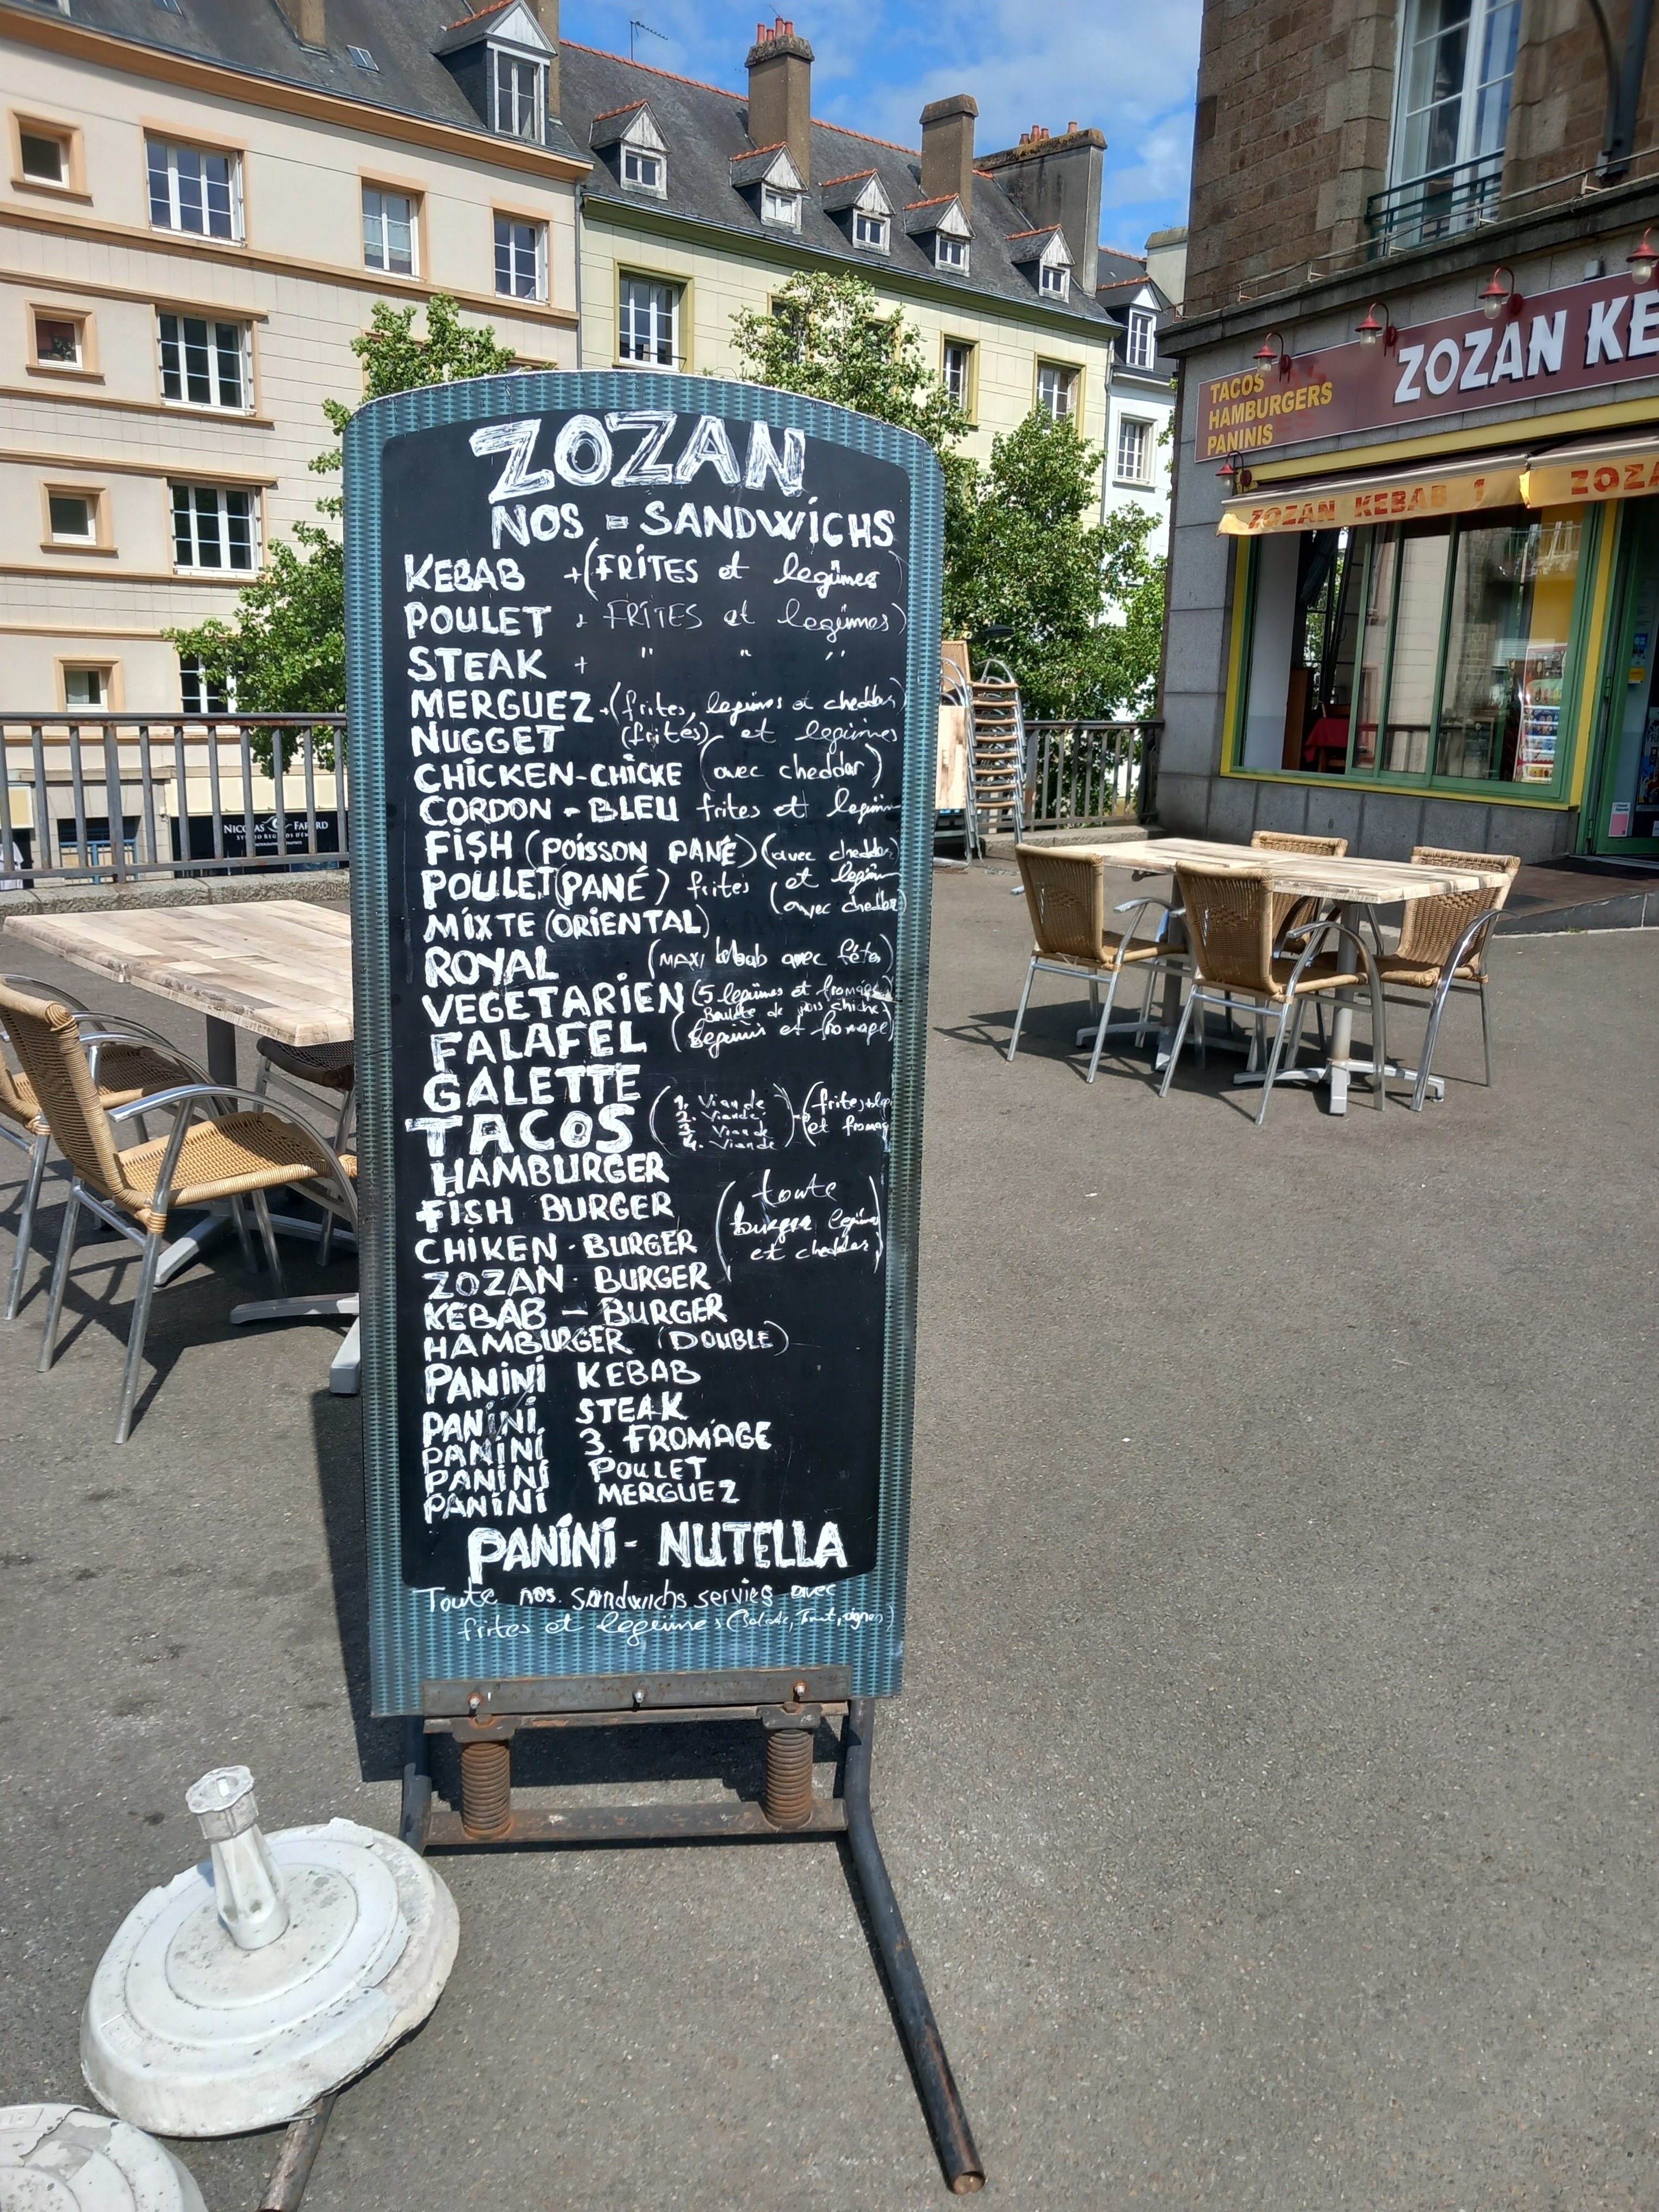 ZOZAN
NOS - SANDWICHS
KEBAB +(FRITES et legümes)
POULET + FRITES et legümes)
STEAK + " " "
MERGUEZ +(frites, legümes et cheddar)
NUGGET (frites) et legümes
CHICKEN-CHICKE (avec cheddar)
CORDON - BLEU frites et legüm
FISH (POISSON PANÉ) (avec cheddar)
POULET (PANÉ) frites et legüm
(avec cheddar)
MIXTE (ORIENTAL)
ROYAL (MAXI kebab avec féta)
VEGETARIEN (5 legümes et fromage)
FALAFEL (Boulete de pois chiche legümes et fromage)
GALETTE
TACOS (1. Viande
2. Viande
3. Viande
4. Viande) (frites
et fromag
HAMBURGER
FISH BURGER (toute
burger legümes
et cheddar)
CHIKEN - BURGER
ZOZAN - BURGER
KEBAB - BURGER
HAMBURGER (DOUBLE)
PANINI KEBAB
PANINI STEAK
PANINI 3. FROMAGE
PANINI POULET
PANINI MERGUEZ
PANINI - NUTELLA
Toute nos. Sandwichs servies avec
frites et legümes (Salade, Tomat, oignon)
TACOS
HAMBURGERS
PANINIS
ZOZAN KE
ZOZAN KEBAB 1
ZOZA
NICOLAS FAFARD